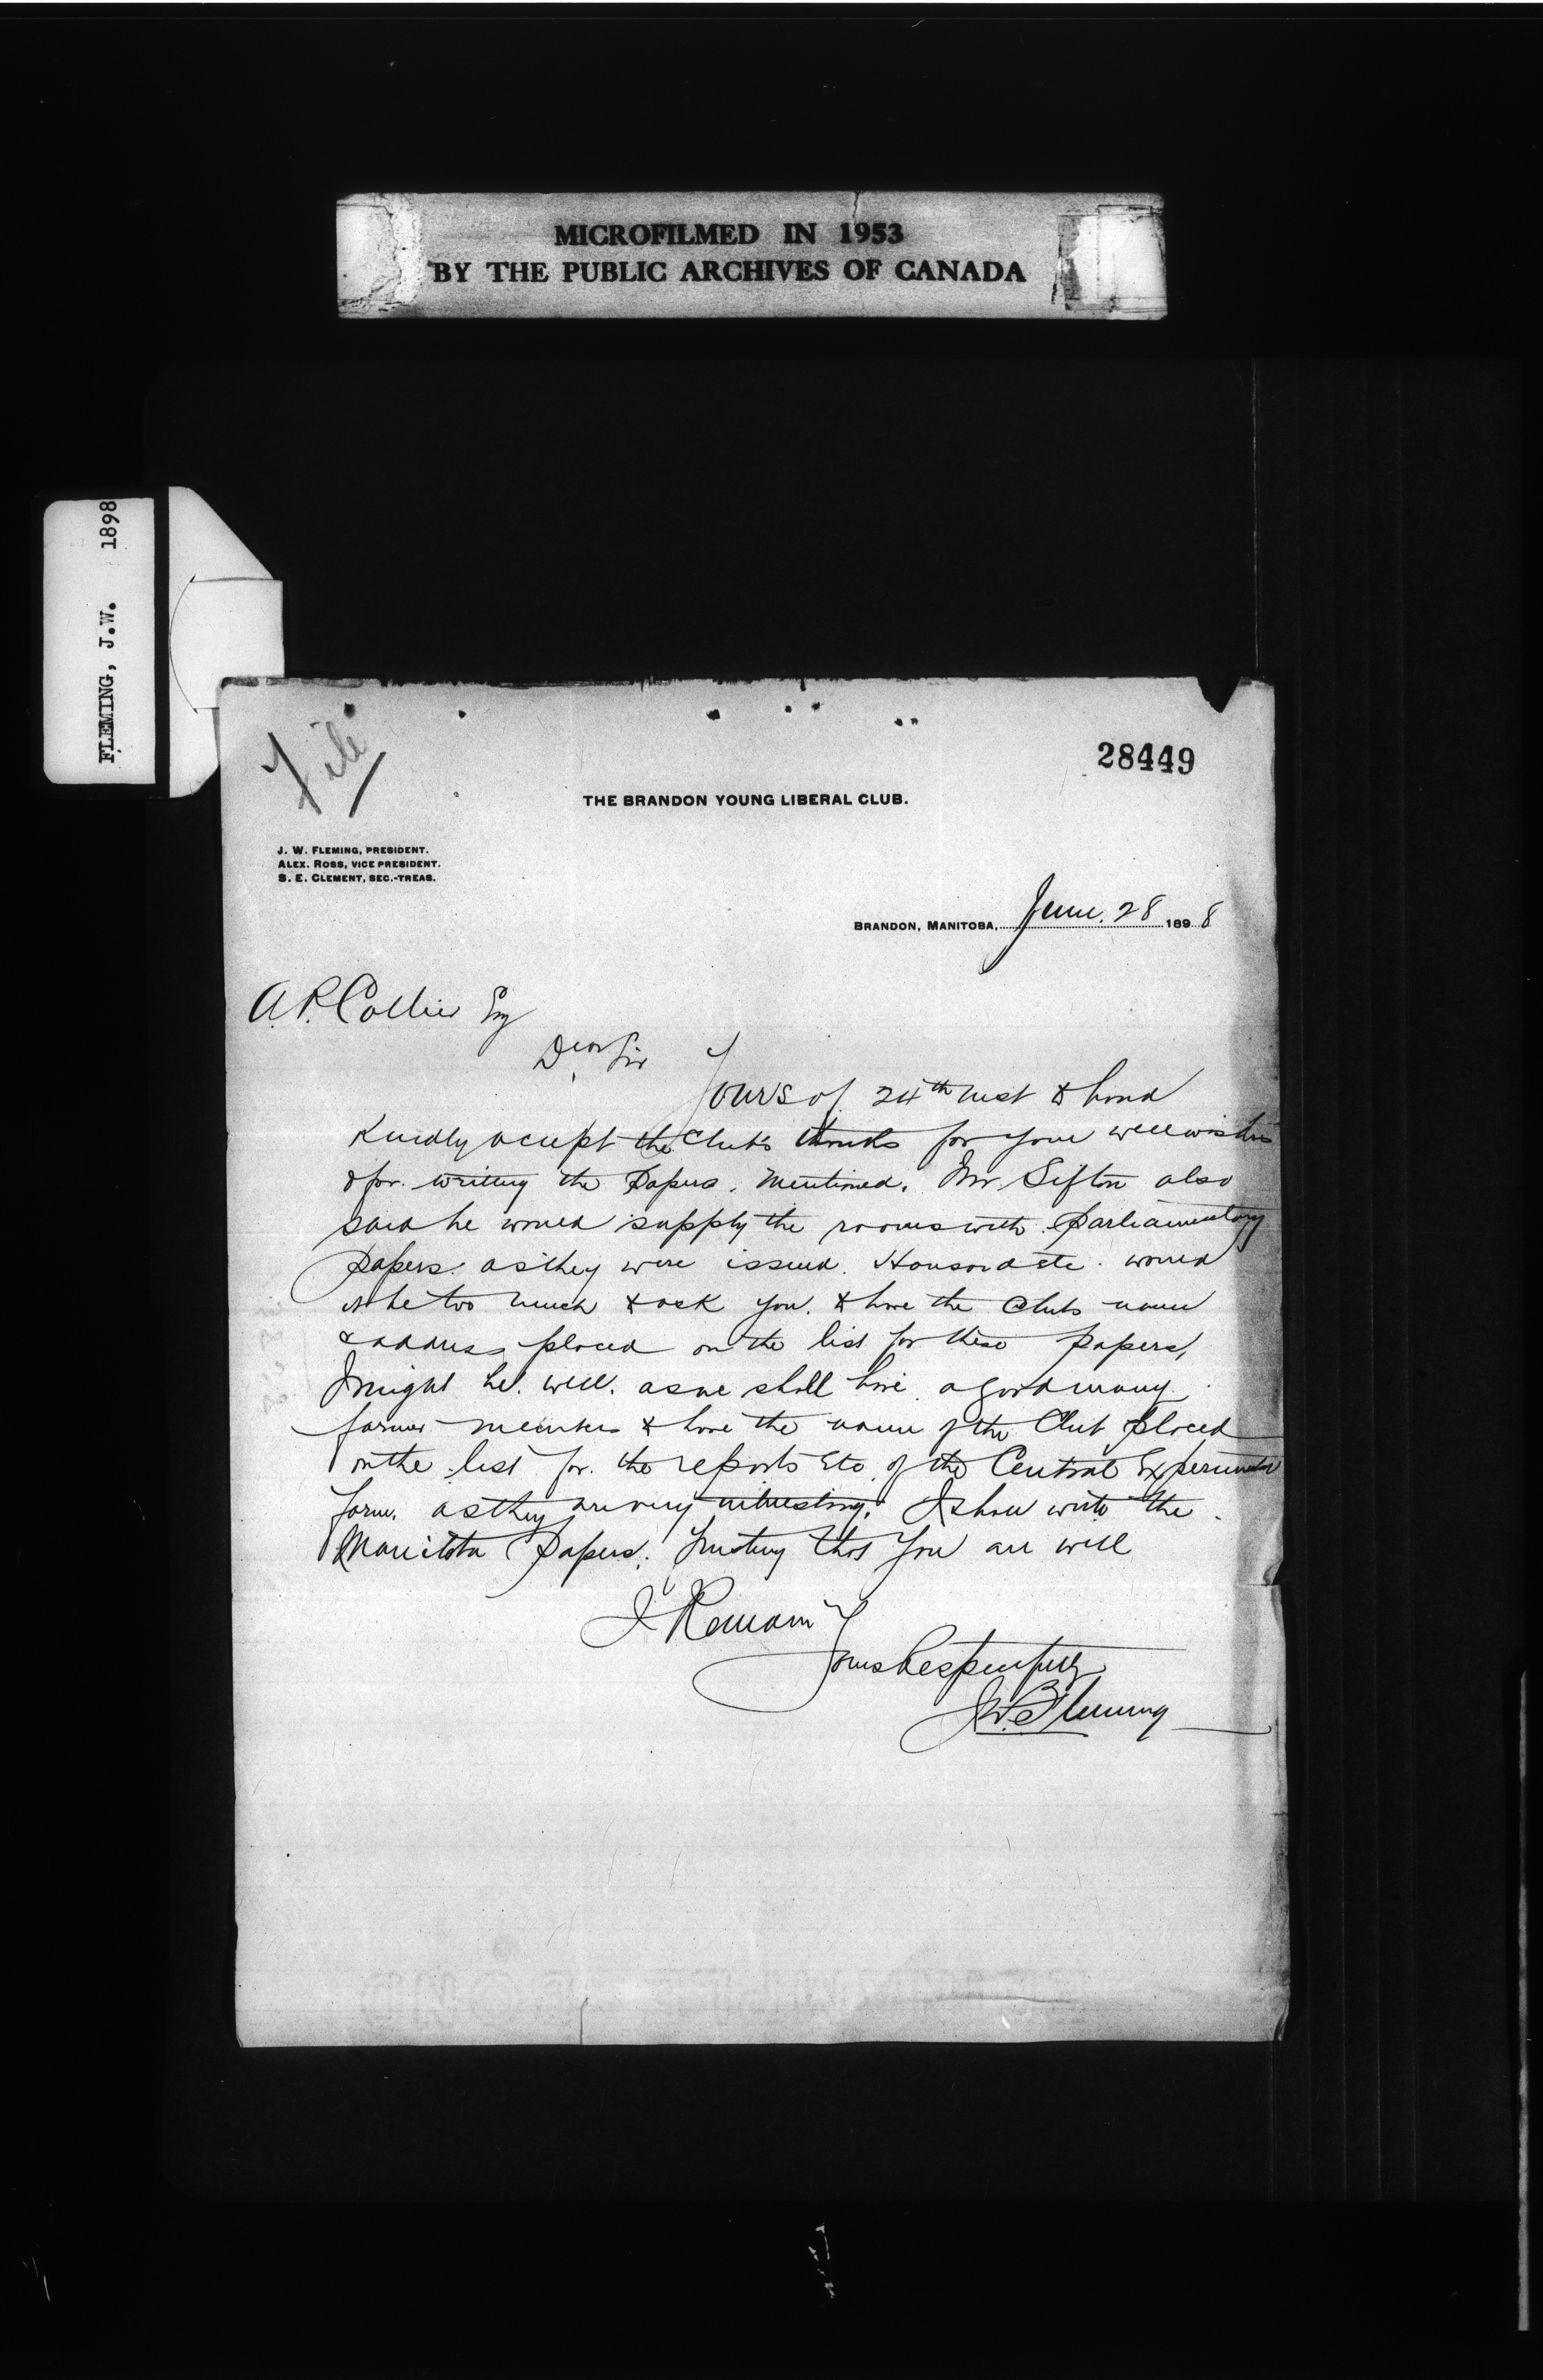 MICROFILMED IN 1953
BY THE PUBLIC ARCHIVES OF CANADA
FLEMING, J.W. 1898
File
28449
THE BRANDON YOUNG LIBERAL CLUB.
J. W. FLEMING, PRESIDENT.
ALEX. ROSS, VICE PRESIDENT.
S. E. CLEMENT, SEC.-TREAS.
BRANDON, MANITOBA, June. 28 1898
A. P. Collier Esq
Dear Sir
Yours of 24th inst to hand
Kindly accept the Club's thanks for your well wishes
& for writing the Papers. Mentioned. Mr Sifton also
said he would supply the rooms with Parliamentary
Papers. as they were issued. Hansard etc. would
it be too much to ask you. to have the Clubs name
& address placed on the list for these papers,
It might be. well. as we shall have a good many
farmer members to have the name of the Club placed
on the list for. the reports Etc. of the Central Experimental
farm. as they are very interesting. I shall write the
Manitoba Papers. Trusting that You are well
I Remain
Yours Respectfully
J. W. Fleming